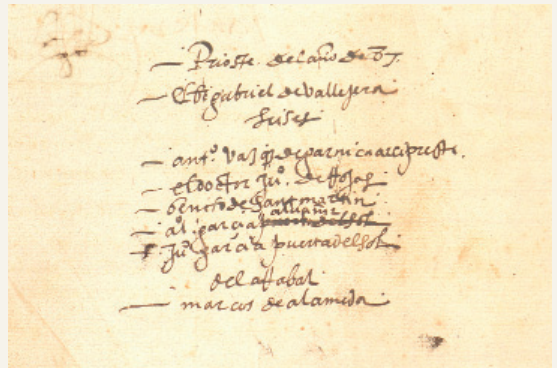 — Prioste del año de 37.
— El br gabriel de vallejera
— ant.º vazqz de garnica arcipreste.
— el doctor ju.º de Rojas
— benito de sant martin
— al.º garcia albañir
— ju.º garcia puerta del sol
del aRabal
— marcos de alameda